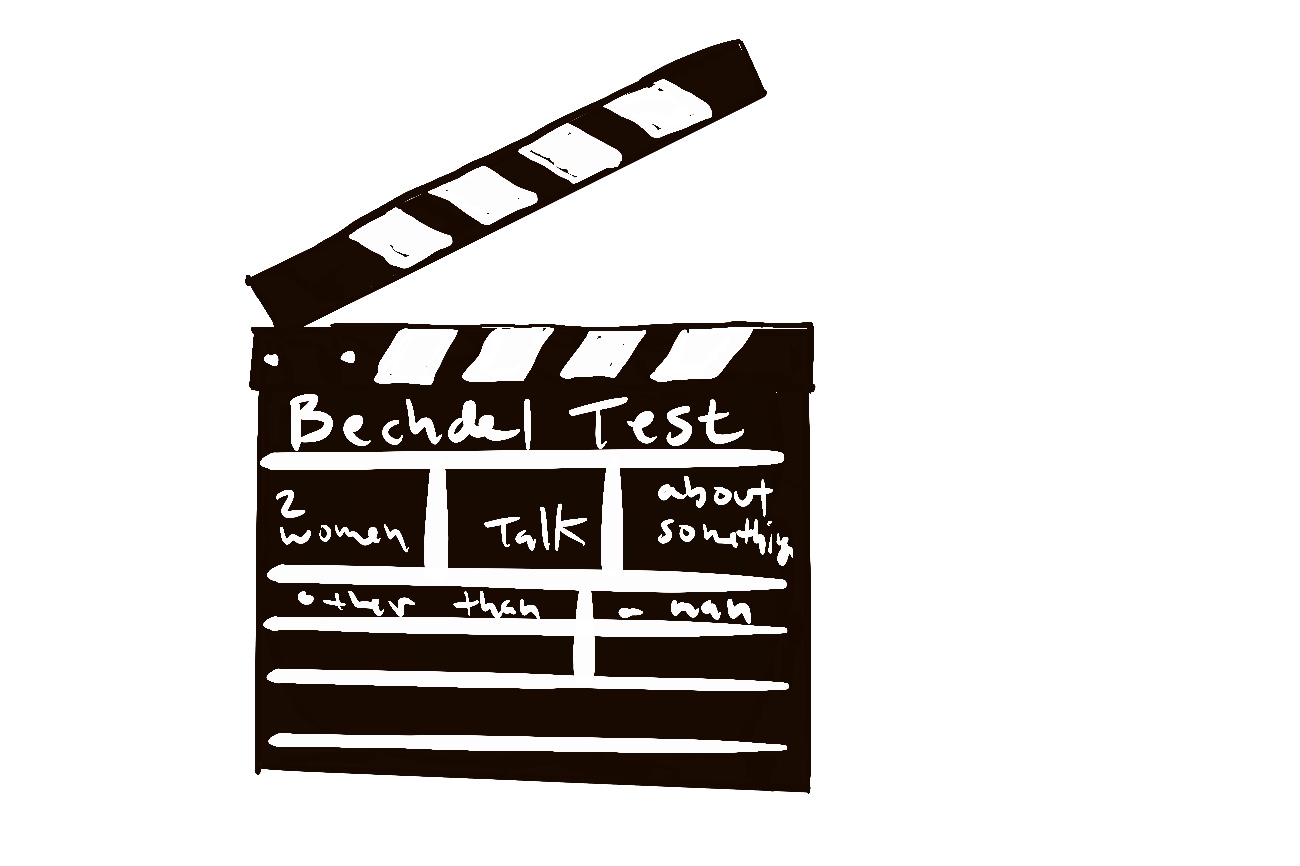 Bechdel Test
2
women
Talk
about
something
other than
a man